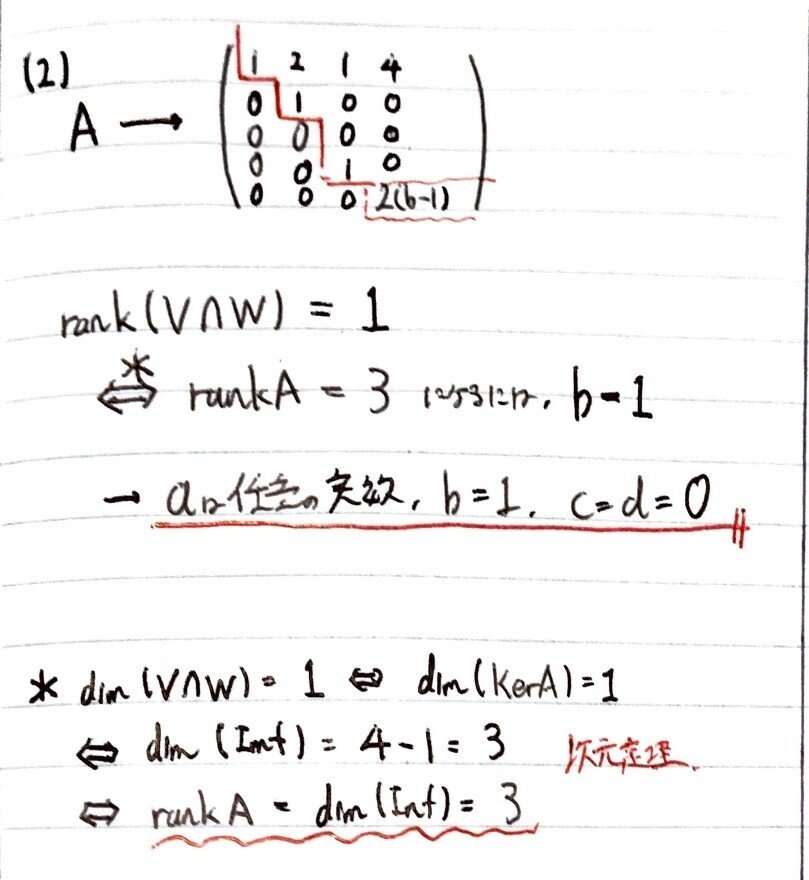 (2)
A → ( 1 2 1 4
0 1 0 0
0 0 0 0
0 0 1 0
0 0 0 2(b-1) )
rank(V∩W) = 1
⇔* rankA = 3 になるには、b=1
→ aは任意の実数, b=1, c=d=0
* dim(V∩W) = 1 ⇔ dim(KerA)=1
⇔ dim(Imf) = 4-1 = 3 次元定理
⇔ rankA = dim(Imf) = 3